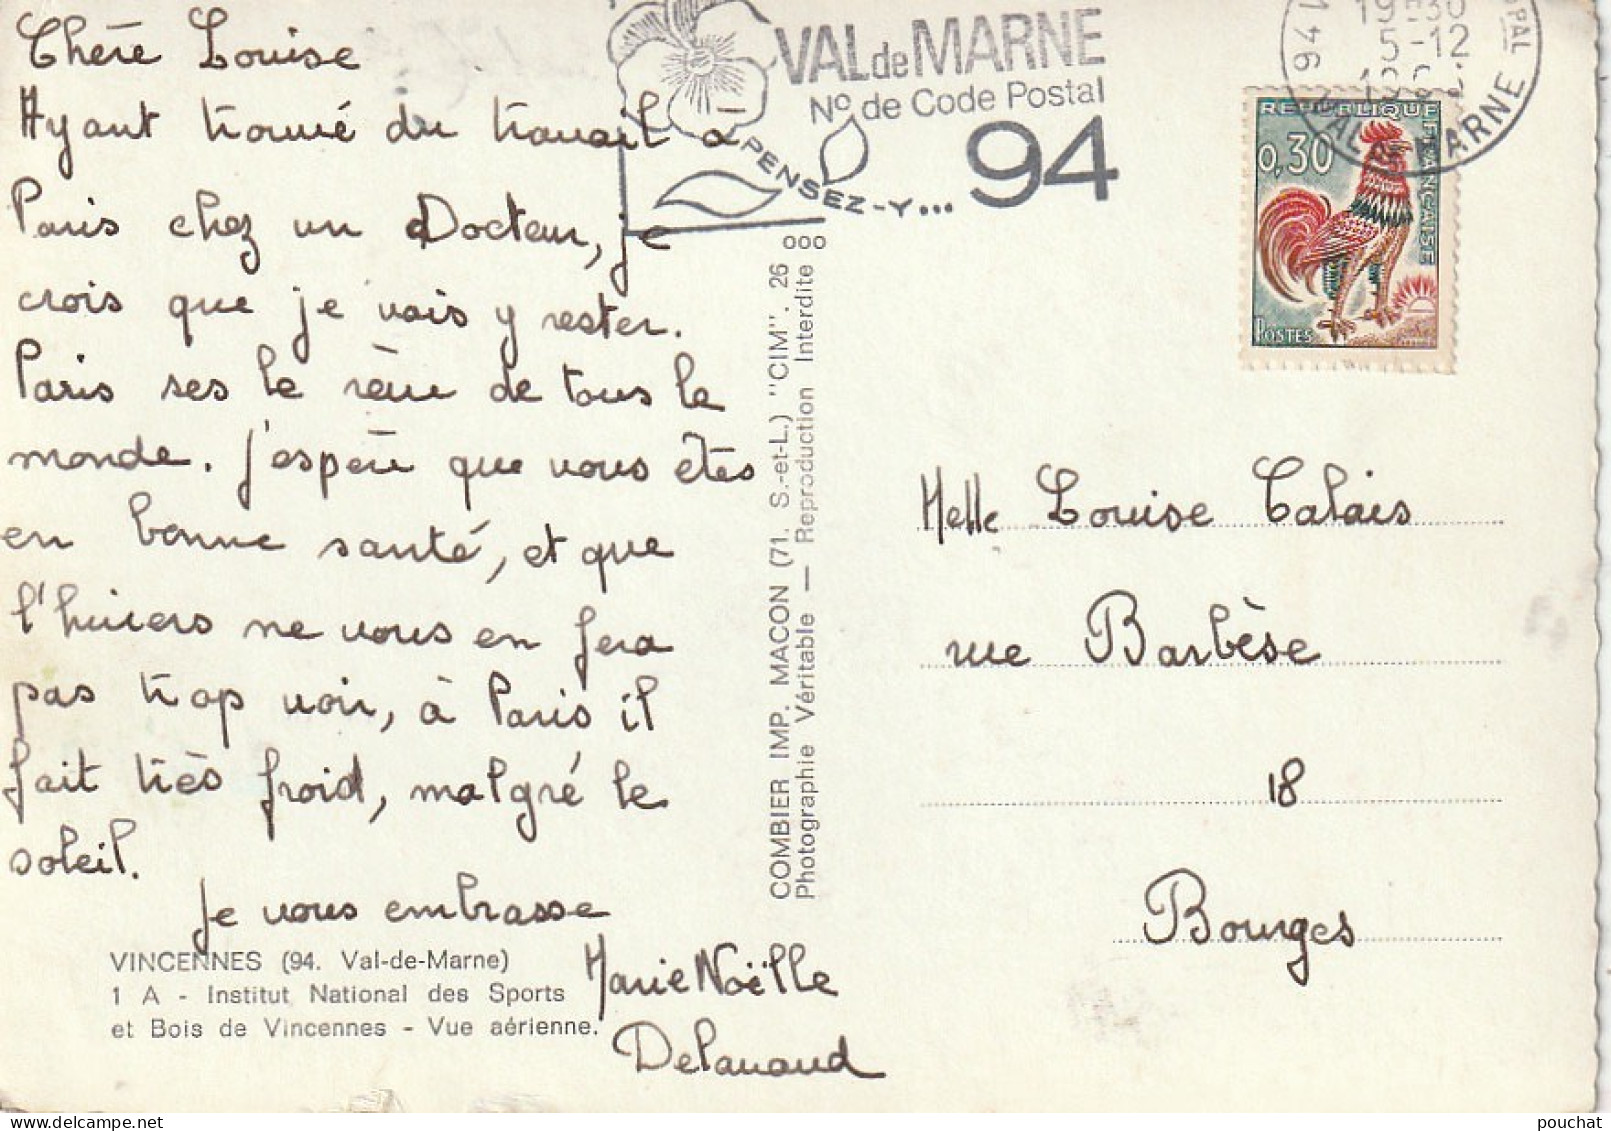 Chère Louise
Ayant trouvé du travail à
Paris chez un Docteur, je
crois que je vais y rester.
Paris ses le rêve de tous le
monde. j'espère que vous êtes
en bonne santé, et que
l'huiers ne vous en fera
pas trop voir, à Paris il
fait très froid, malgré le
soleil.
Je vous embrasse
Marie Noëlle
Delavaud
VINCENNES (94. Val-de-Marne)
1 A - Institut National des Sports
et Bois de Vincennes - Vue aérienne.
COMBIER IMP. MACON (71. S.-et-L.) "CIM". 26
Photographie Véritable — Reproduction Interdite
VAL de MARNE
No de Code Postal
94
PENSEZ-Y...
5-12
VAL DE MARNE
REPUBLIQUE FRANÇAISE
0,30
POSTES
Melle Louise Calais
rue Barbèse
18
Bourges
pouchat